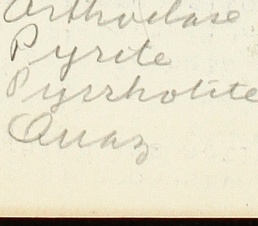 Orthoclase
Pyrite
Pyrrhotite
Quaz